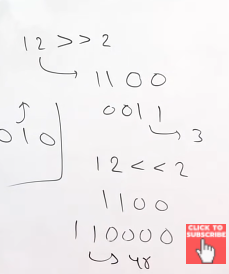 12 >> 2
1100
0011
3
010
12 << 2
1100
110000
48
CLICK TO
SUBSCRIBE